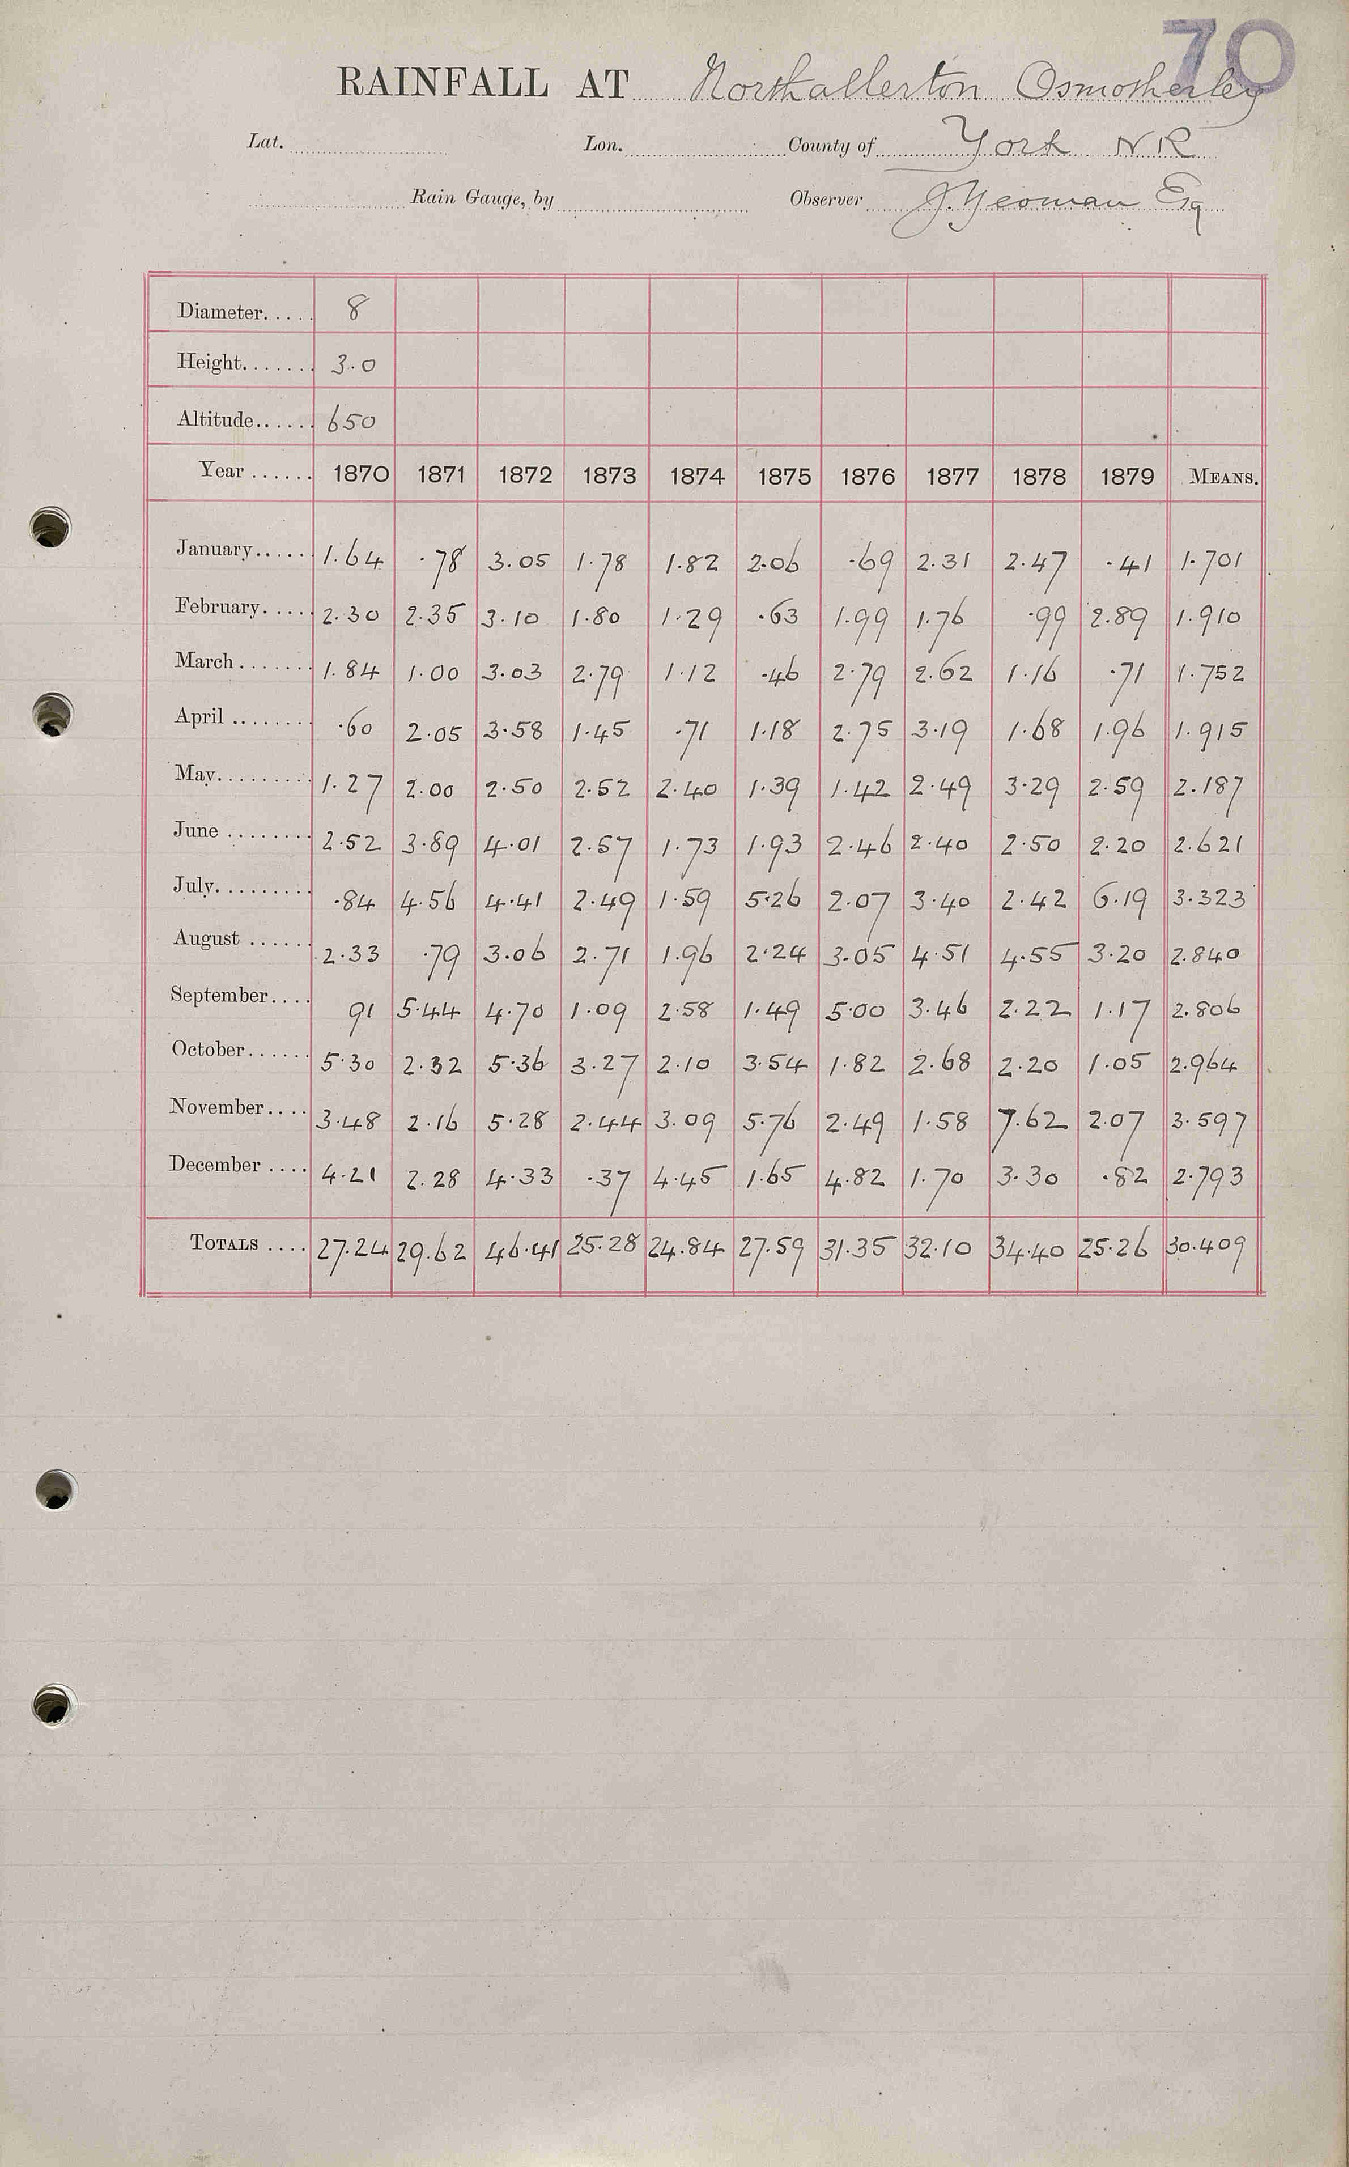 70
RAINFALL AT Northallerton Osmotherley
Lat. Lon. County of York N R
Rain Gauge, by Observer J. Yeoman Esq
Diameter..... 8
Height....... 3.0
Altitude...... 650
Year ...... 1870 1871 1872 1873 1874 1875 1876 1877 1878 1879 MEANS.
January...... 1.64 .78 3.05 1.78 1.82 2.06 .69 2.31 2.47 .41 1.701
February..... 2.30 2.35 3.10 1.80 1.29 .63 1.99 1.76 .99 2.89 1.910
March....... 1.84 1.00 3.03 2.79 1.12 .46 2.79 2.62 1.16 .71 1.752
April ........ .60 2.05 3.58 1.45 .71 1.18 2.75 3.19 1.68 1.96 1.915
May.......... 1.27 2.00 2.50 2.52 2.40 1.39 1.42 2.49 3.29 2.59 2.187
June ........ 2.52 3.89 4.01 2.57 1.73 1.93 2.46 2.40 2.50 2.20 2.621
July.......... .84 4.56 4.41 2.49 1.59 5.26 2.07 3.40 2.42 6.19 3.323
August ...... 2.33 .79 3.06 2.71 1.96 2.24 3.05 4.51 4.55 3.20 2.840
September.... 91 5.44 4.70 1.09 2.58 1.49 5.00 3.46 2.22 1.17 2.806
October...... 5.30 2.32 5.36 3.27 2.10 3.54 1.82 2.68 2.20 1.05 2.964
November.... 3.48 2.16 5.28 2.44 3.09 5.76 2.49 1.58 7.62 2.07 3.597
December .... 4.21 2.28 4.33 .37 4.45 1.65 4.82 1.70 3.30 .82 2.793
TOTALS .... 27.24 29.62 46.41 25.28 24.84 27.59 31.35 32.10 34.40 25.26 30.409